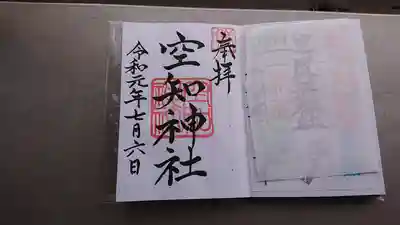 奉拝
空知神社
令和元年七月六日